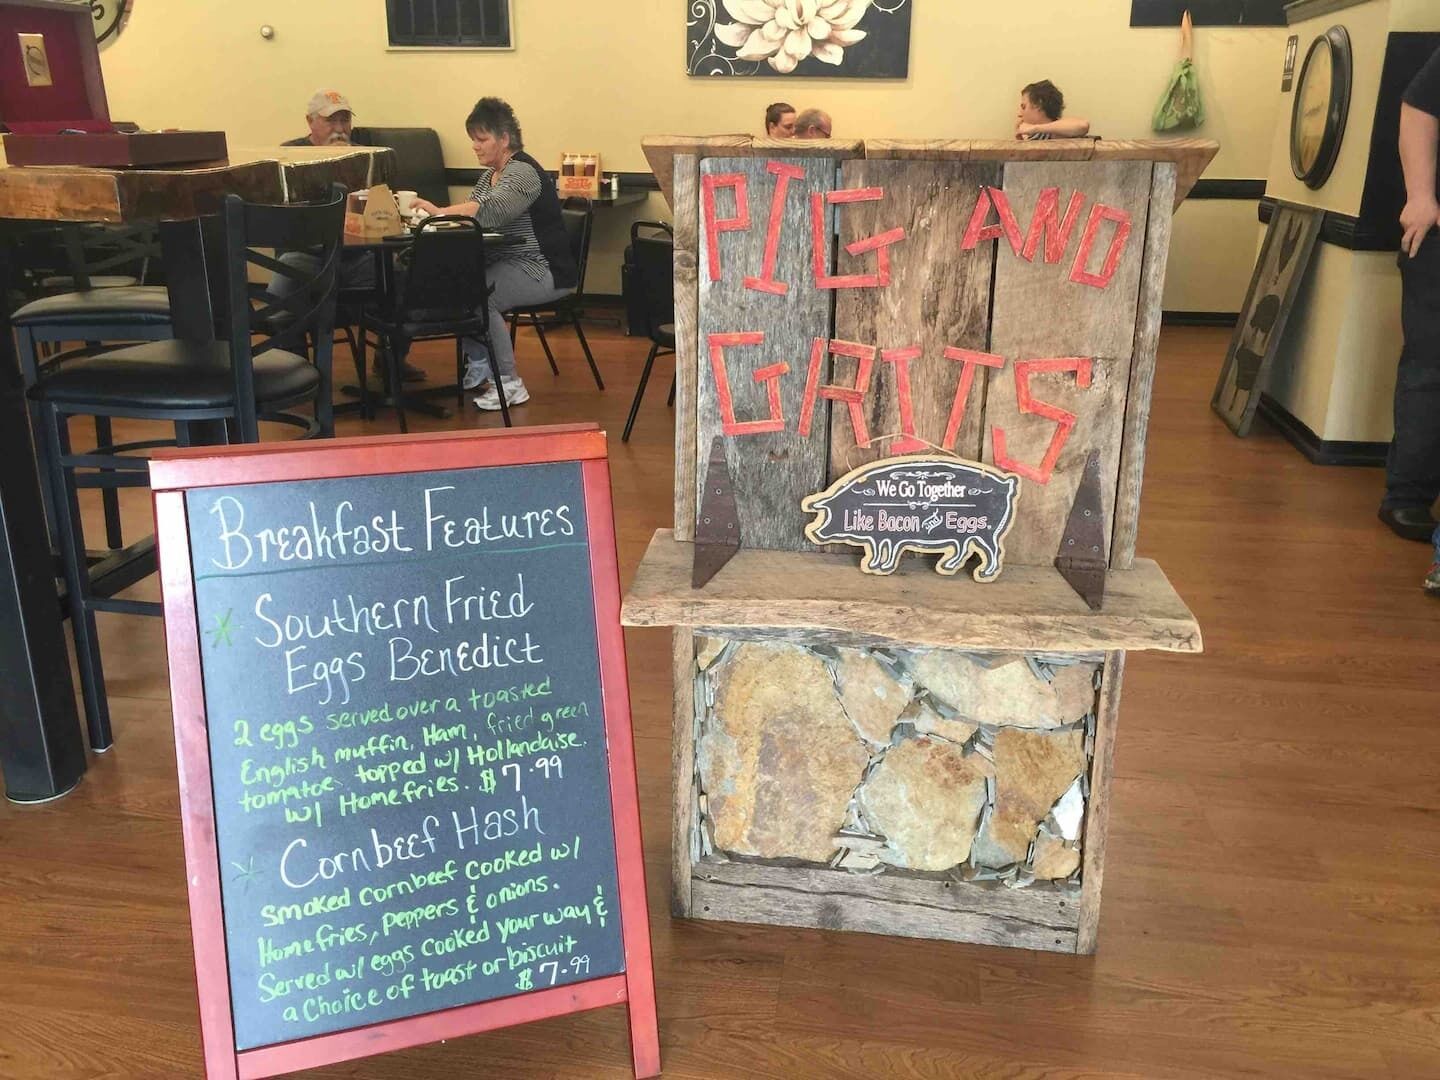 Breakfast Features
* Southern Fried
Eggs Benedict
2 eggs served over a toasted
English muffin, Ham, fried green
tomatoe topped w/ Hollandaise.
w/ Homefries. $7.99
* Cornbeef Hash
Smoked cornbeef cooked w/
Homefries, peppers & onions.
Served w/ eggs cooked your way &
a choice of toast or biscuit
$7.99
PIG AND
GRITS
We Go Together
Like Bacon and Eggs.